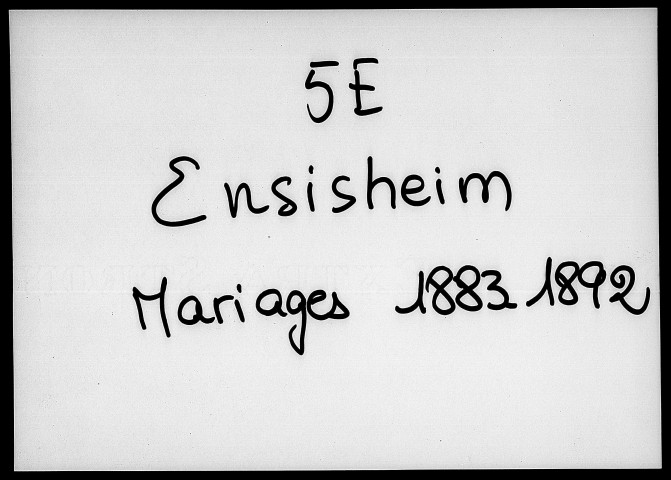 5E
Ensisheim
Mariages 1883-1892